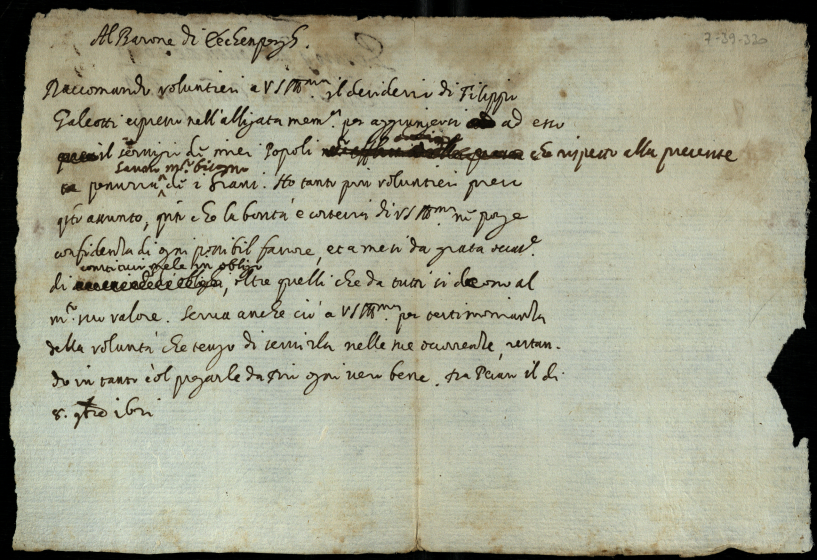 Al Barone di Echenpergh.
7-39-320
Raccomando volontieri a VS Illma il desiderio di Filippo
Galeotti espresso nell'alligata memria per aggiungersi ad esso
il servizio de miei Popoli che rispetto alla presente
hanno mto bisogno
penuria de i Grani. Ho tanto più volontieri preso
qsto assunto, qto che la bontà e cortesia di VS Illma mi porge
confidenza di ogni possibil favore, et a me si da grata occasne
constituirmele in obligo
di oltre quelli che da tutti si devono al
mto suo valore. Serva anche ciò a VS Illma per testimonianza
della volontà che tengo di servirla nelle sue occorrenze, restan-
do in tanto col pregarle da Dio ogni vero bene. il di
8. Xbre